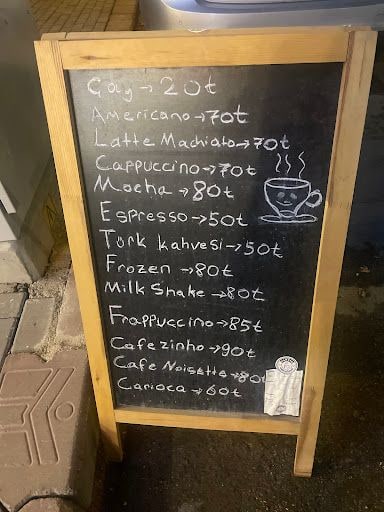 Çay → 20t
Americano → 70t
Latte Machiato → 70t
Cappuccino → 70t
Mocha → 80t
Espresso → 50t
Türk kahvesi → 50t
Frozen → 80t
Milk Shake → 80t
Frappuccino → 85t
Cafezinho → 90t
Cafe Noisette → 80t
Carioca → 60t